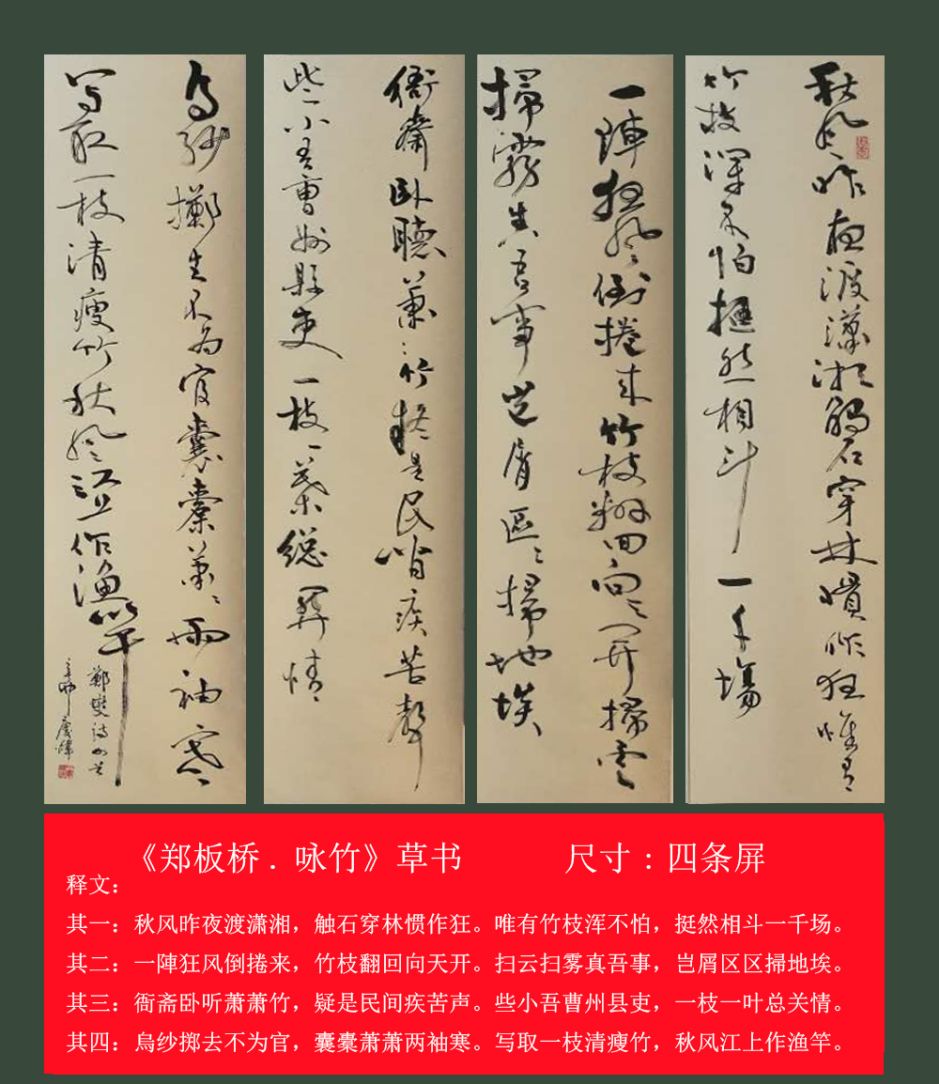 秋风昨夜渡潇湘觸石穿林慣作狂惟有
竹枝渾不怕挺然相斗一千場
一陣狂风倒捲来竹枝翻回向天开掃云
掃霧真吾事岂屑區區掃地埃
衙齋卧聴萧萧竹疑是民间疾苦聲
些小吾曹州縣吏一枝一葉総関情
烏紗擲去不为官囊橐萧萧两袖寒
写取一枝清瘦竹秋风江上作漁竿
鄭燮诗
《郑板桥．咏竹》草书 尺寸：四条屏
释文：
其一：秋风昨夜渡潇湘，触石穿林惯作狂。唯有竹枝浑不怕，挺然相斗一千场。
其二：一陣狂风倒捲来，竹枝翻回向天开。扫云扫雾真吾事，岂屑区区掃地埃。
其三：衙斋卧听萧萧竹，疑是民间疾苦声。些小吾曹州县吏，一枝一叶总关情。
其四：烏纱掷去不为官，囊橐萧萧两袖寒。写取一枝清瘦竹，秋风江上作渔竿。